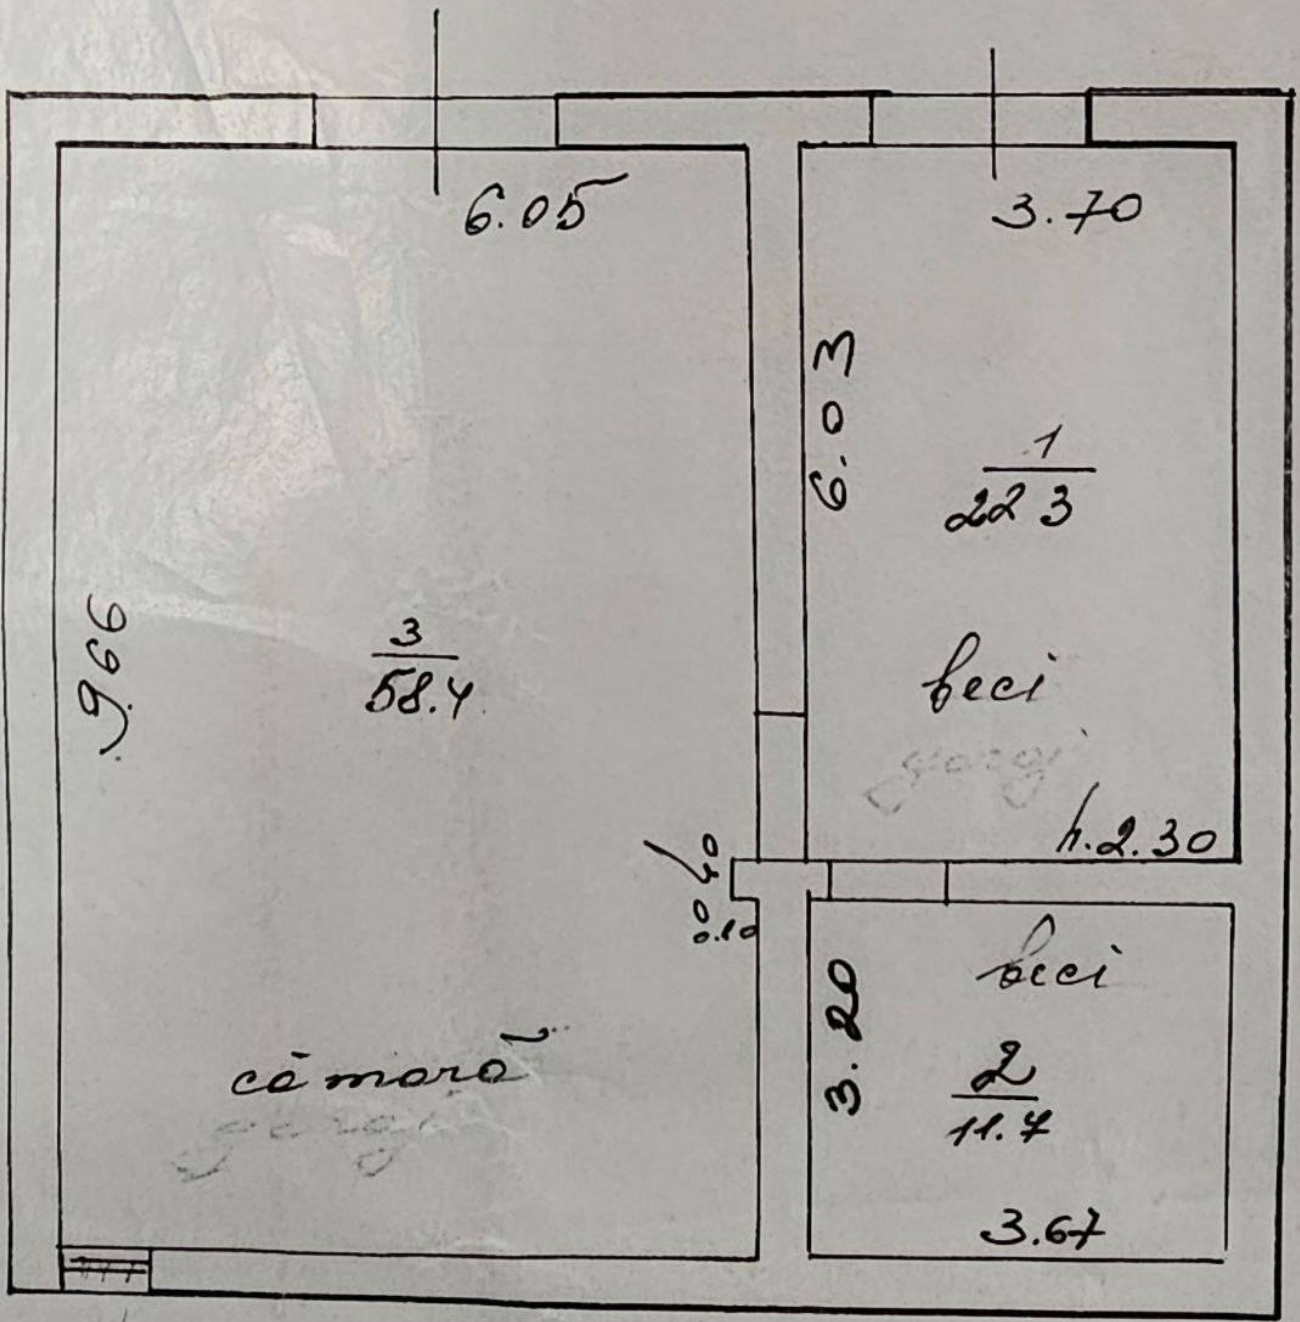 6.05
3.70
6.03
1
22 3
9.66
3
58.4
beci
h.2.30
0.40
0.10
beci
3.20
cămară
2
11.7
3.67